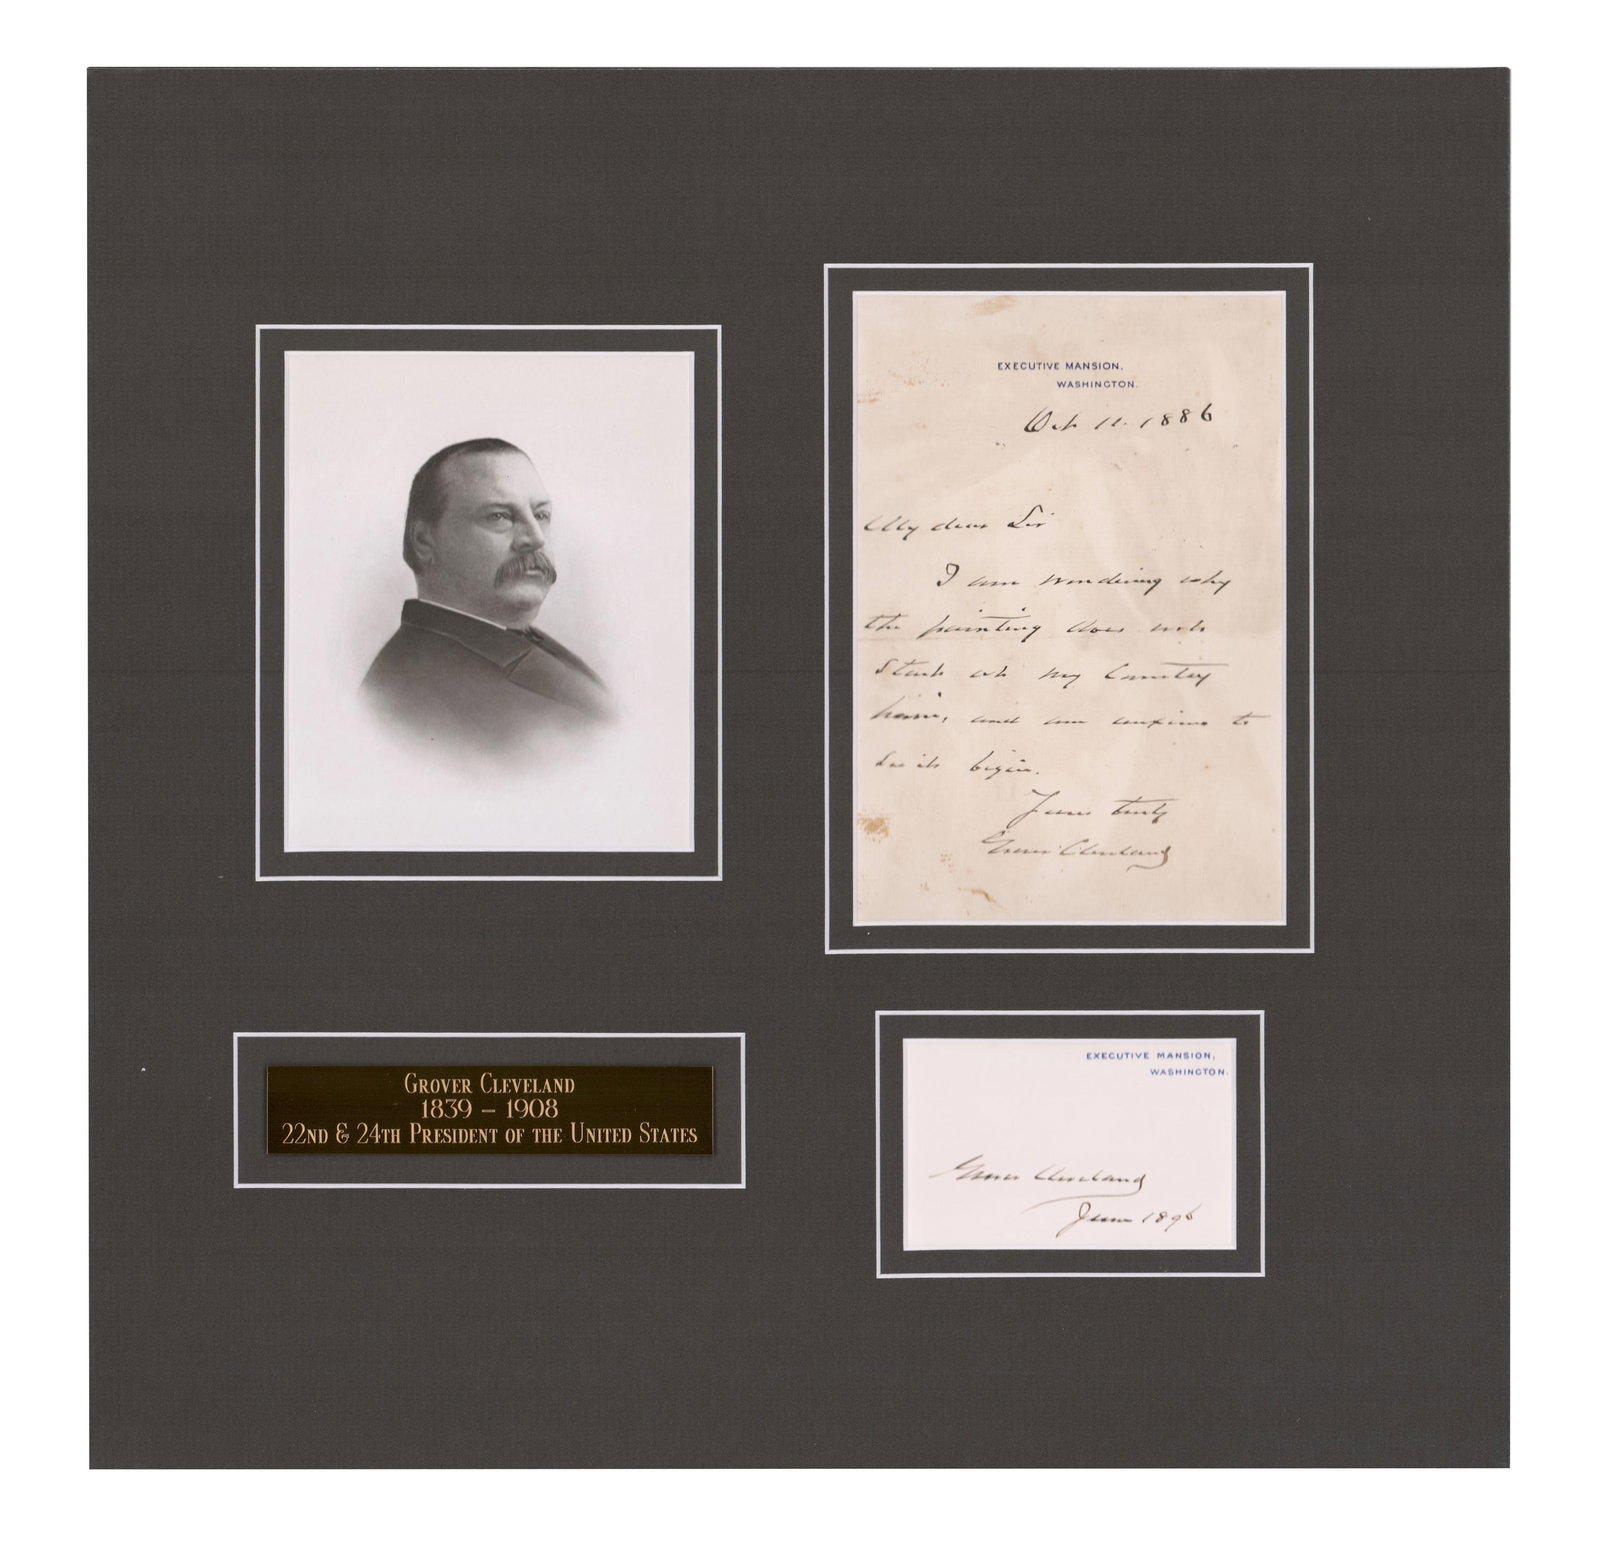 EXECUTIVE MANSION,
WASHINGTON.
Oct 11. 1886
My dear Sir
I am wondering why
the painting does not
start at my Country
home, and am anxious to
see it begin.
Yours truly
Grover Cleveland
GROVER CLEVELAND
1839 – 1908
22ND & 24TH PRESIDENT OF THE UNITED STATES
EXECUTIVE MANSION,
WASHINGTON.
Grover Cleveland
June 1896